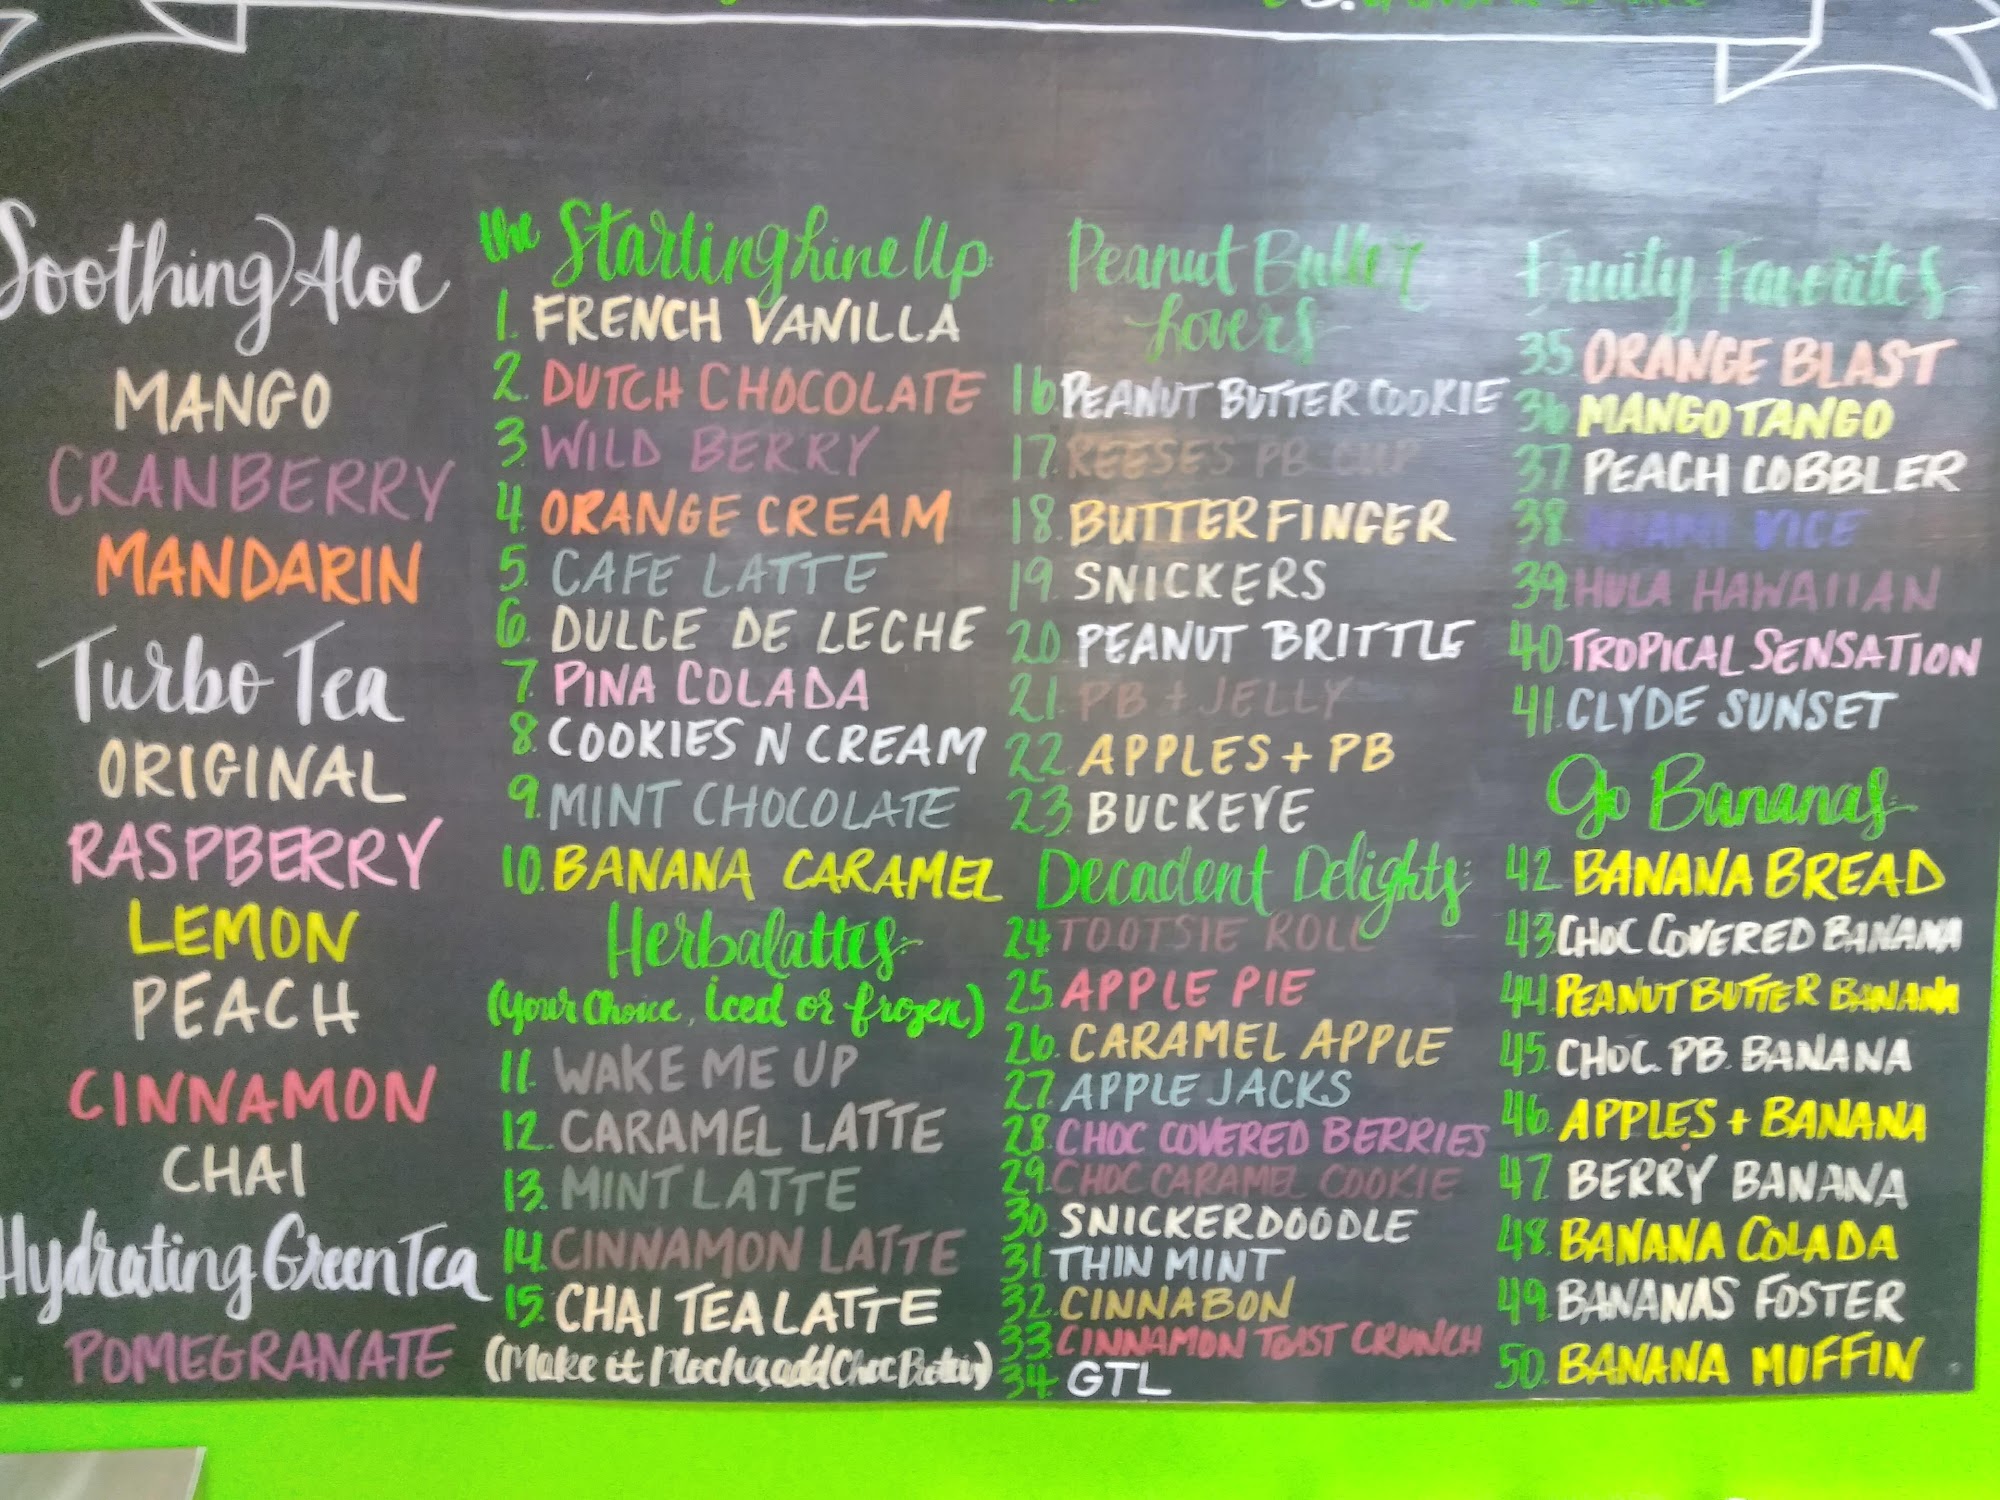 Soothing Aloe
MANGO
CRANBERRY
MANDARIN
Turbo Tea
ORIGINAL
RASPBERRY
LEMON
PEACH
CINNAMON
CHAI
Hydrating Green Tea
POMEGRANATE
the Starting Line Up:
1. FRENCH VANILLA
2. DUTCH CHOCOLATE
3. WILD BERRY
4. ORANGE CREAM
5. CAFE LATTE
6. DULCE DE LECHE
7. PINA COLADA
8. COOKIES N CREAM
9. MINT CHOCOLATE
10. BANANA CARAMEL
Herbalattes:
(Your Choice, iced or frozen)
11. WAKE ME UP
12. CARAMEL LATTE
13. MINT LATTE
14. CINNAMON LATTE
15. CHAI TEA LATTE
(Make it Mocha, add Choc Protein)
Peanut Butter
Lovers:
16. PEANUT BUTTER COOKIE
17. REESES PB CUP
18. BUTTERFINGER
19. SNICKERS
20. PEANUT BRITTLE
21. PB + JELLY
22. APPLES + PB
23. BUCKEYE
Decadent Delights:
24. TOOTSIE ROLL
25. APPLE PIE
26. CARAMEL APPLE
27. APPLE JACKS
28. CHOC COVERED BERRIES
29. CHOC CARAMEL COOKIE
30. SNICKERDOODLE
31. THIN MINT
32. CINNABON
33. CINNAMON TOAST CRUNCH
34. GTL
Fruity Favorites
35. ORANGE BLAST
36. MANGO TANGO
37. PEACH COBBLER
38. MIAMI VICE
39. HULA HAWAIIAN
40. TROPICAL SENSATION
41. CLYDE SUNSET
Go Bananas:
42. BANANA BREAD
43. CHOC COVERED BANANA
44. PEANUT BUTTER BANANA
45. CHOC. PB. BANANA
46. APPLES + BANANA
47. BERRY BANANA
48. BANANA COLADA
49. BANANAS FOSTER
50. BANANA MUFFIN